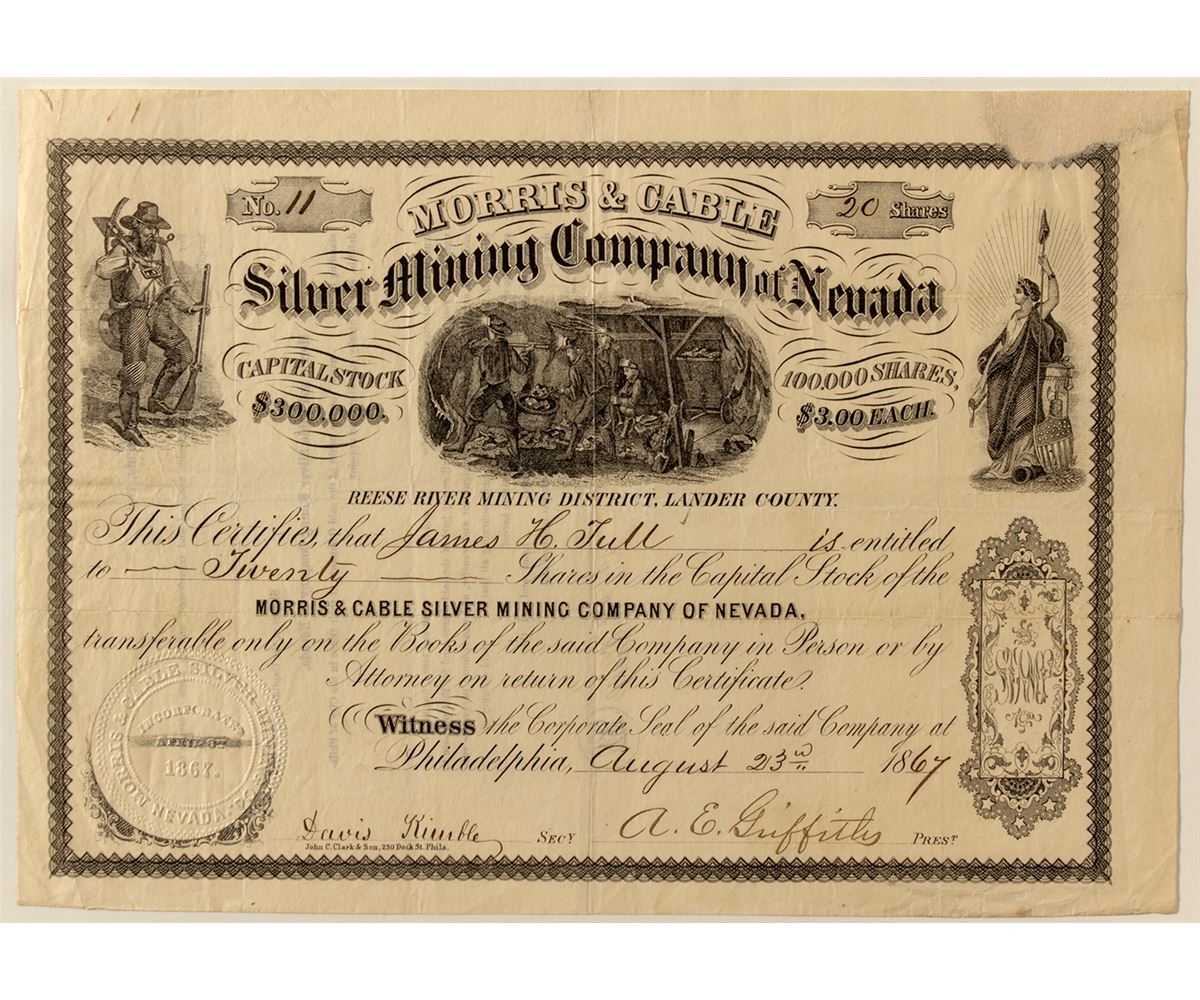 No. 11
MORRIS & CABLE
20 Shares
Silver Mining Company of Nevada
CAPITAL STOCK
$300,000.
100,000 SHARES,
$3.00 EACH.
REESE RIVER MINING DISTRICT, LANDER COUNTY.
This Certifies, that James H. Tull is entitled
to Twenty Shares in the Capital Stock of the
MORRIS & CABLE SILVER MINING COMPANY OF NEVADA,
transferable only on the Books of the said Company in Person or by
Attorney on return of this Certificate.
Witness the Corporate Seal of the said Company at
Philadelphia, August 23d 1867
MORRIS & CABLE SILVER MINING CO.
NEVADA
INCORPORATED
APRIL
1867.
Davis Kimble SECY.
A. E. Griffiths PREST.
John C. Clark & Son, 230 Dock St. Phila.